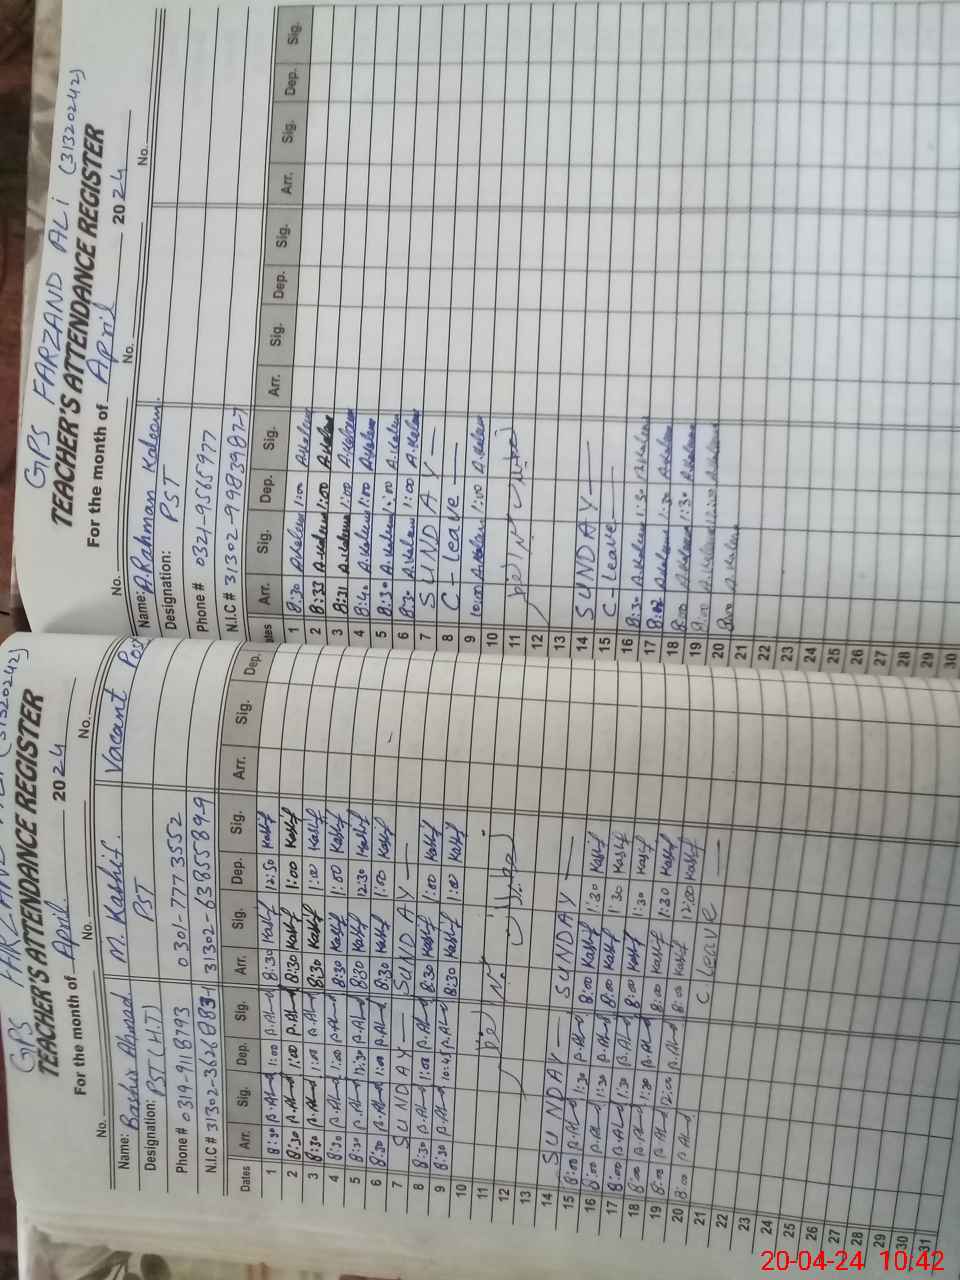 GPS FARZAND ALI (31320242)
TEACHER'S ATTENDANCE REGISTER
For the month of April 2024
No. No. No.
Name: Bashir Ahmad M. Kashif. Vacant Post
Designation: PST (H.T) PST
Phone # 0319-9118793 0301-7773552
N.I.C # 31302-3626883-1 31302-6385589-9
Dates Arr. Sig. Dep. Sig. Arr. Sig. Dep. Sig. Arr. Sig. Dep.
1 8:30 B.Ahmd 1:00 B.Ahmd 8:30 Kashif 12:50 Kashif
2 8:30 B.Ahmd 1:00 B.Ahmd 8:30 Kashif 1:00 Kashif
3 8:30 B.Ahmd 1:00 B.Ahmd 8:30 Kashif 1:00 Kashif
4 8:30 B.Ahmd 1:00 B.Ahmd 8:30 Kashif 1:00 Kashif
5 8:30 B.Ahmd 12:30 B.Ahmd 8:30 Kashif 12:30 Kashif
6 8:30 B.Ahmd 1:00 B.Ahmd 8:30 Kashif 1:00 Kashif
7 SUNDAY SUNDAY
8 8:30 B.Ahmd 1:00 B.Ahmd 8:30 Kashif 1:00 Kashif
9 8:30 B.Ahmd 10:45 B.Ahmd 8:30 Kashif 1:00 Kashif
10
11
12
13
14 SUNDAY SUNDAY
15 8:00 B.Ahmd 1:30 B.Ahmd 8:00 Kashif 1:30 Kashif
16 8:00 B.Ahmd 1:30 B.Ahmd 8:00 Kashif 1:30 Kashif
17 8:00 B.Ahmd 1:30 B.Ahmd 8:00 Kashif 1:30 Kashif
18 8:00 B.Ahmd 1:30 B.Ahmd 8:00 Kashif 1:30 Kashif
19 8:00 B.Ahmd 12:00 B.Ahmd 8:00 Kashif 12:00 Kashif
20 8:00 B.Ahmd C. Leave
21
22
23
24
25
26
27
28
29
30
31
GPS FARZAND ALI (31320242)
TEACHER'S ATTENDANCE REGISTER
For the month of April 2024
No. No. No.
Name: A.Rahman Kaleem.
Designation: PST
Phone # 0321-9565977
N.I.C # 31302-9983987-7
Dates Arr. Sig. Dep. Sig. Arr. Sig. Dep. Sig. Arr. Sig. Dep. Sig.
1 8:30 A.Kaleem 1:00 A.Kaleem
2 8:33 A.Kaleem 1:00 A.Kaleem
3 8:31 A.Kaleem 1:00 A.Kaleem
4 8:40 A.Kaleem 1:00 A.Kaleem
5 8:30 A.Kaleem A.Kaleem
6 8:30 A.Kaleem 1:00 A.Kaleem
7 SUNDAY
8 C-Leave
9 10:00 A.Kaleem 1:00 A.Kaleem
10
11
12
13
14 SUNDAY
15 C-Leave
16 8:30 A.Kaleem 1:30 A.Kaleem
17 8:02 A.Kaleem 1:30 A.Kaleem
18 8:00 A.Kaleem 1:30 A.Kaleem
19 A.Kaleem 12:00 A.Kaleem
20 8:00 A.Kaleem
21
22
23
24
25
26
27
28
29
30
20-04-24 10:42